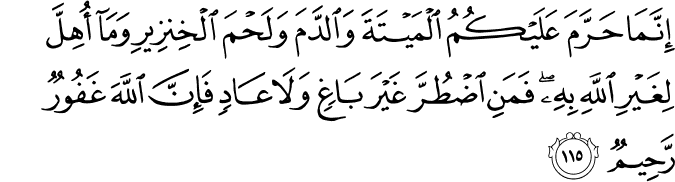 إِنَّمَا حَرَّمَ عَلَيۡكُمُ ٱلۡمَيۡتَةَ وَٱلدَّمَ وَلَحۡمَ ٱلۡخِنزِيرِ وَمَآ أُهِلَّ
لِغَيۡرِ ٱللَّهِ بِهِۦۖ فَمَنِ ٱضۡطُرَّ غَيۡرَ بَاغٖ وَلَا عَادٖ فَإِنَّ ٱللَّهَ غَفُورٞ
رَّحِيمٞ ١١٥